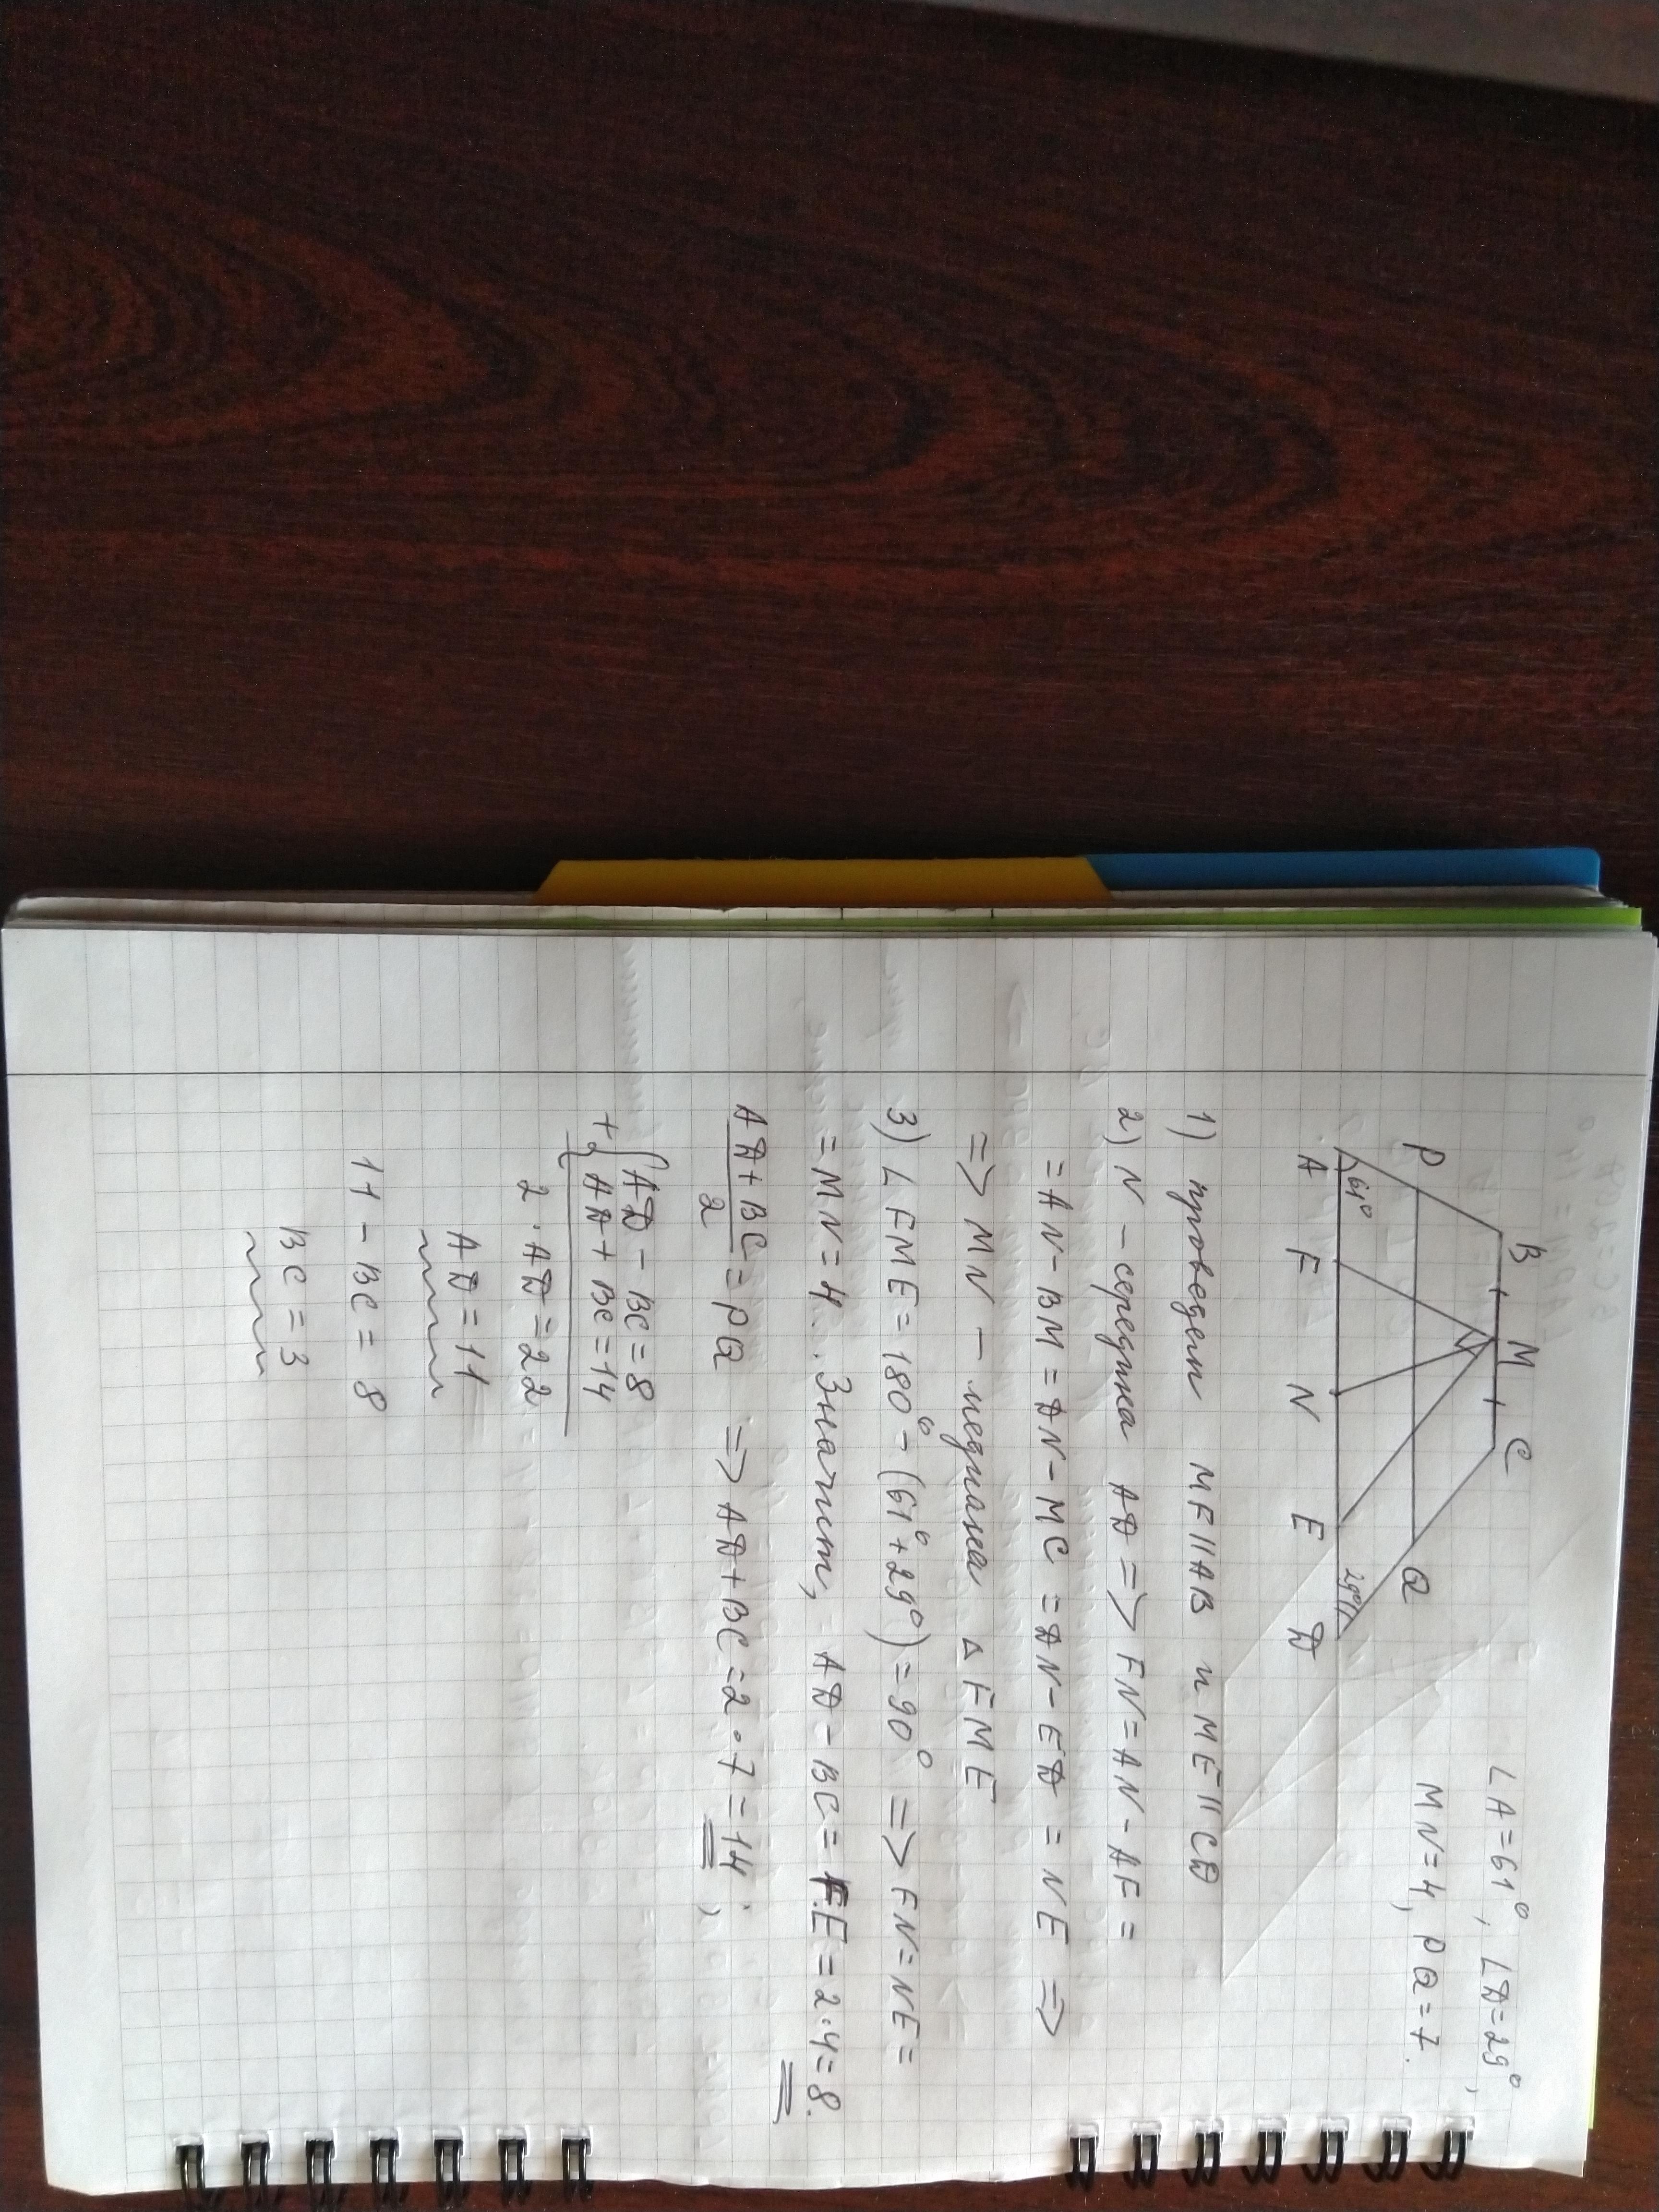 ∠A = 61°, ∠D = 29°,
MN = 4, PQ = 7.
B M C
P Q
61° 29°
A F N E D
1) проведем MF || AB и ME || CD
2) N - середина AD => FN = AN - AF =
= AN - BM = DN - MC = DN - ED = NE =>
=> MN - медиана △ FME
3) ∠ FME = 180° - (61° + 29°) = 90° => FN = NE =
= MN = 4. Значит, AD - BC = FE = 2·4 = 8.
AD + BC / 2 = PQ => AD + BC = 2 · 7 = 14;
+ { AD - BC = 8
AD + BC = 14
2 · AD = 22
AD = 11
11 - BC = 8
BC = 3